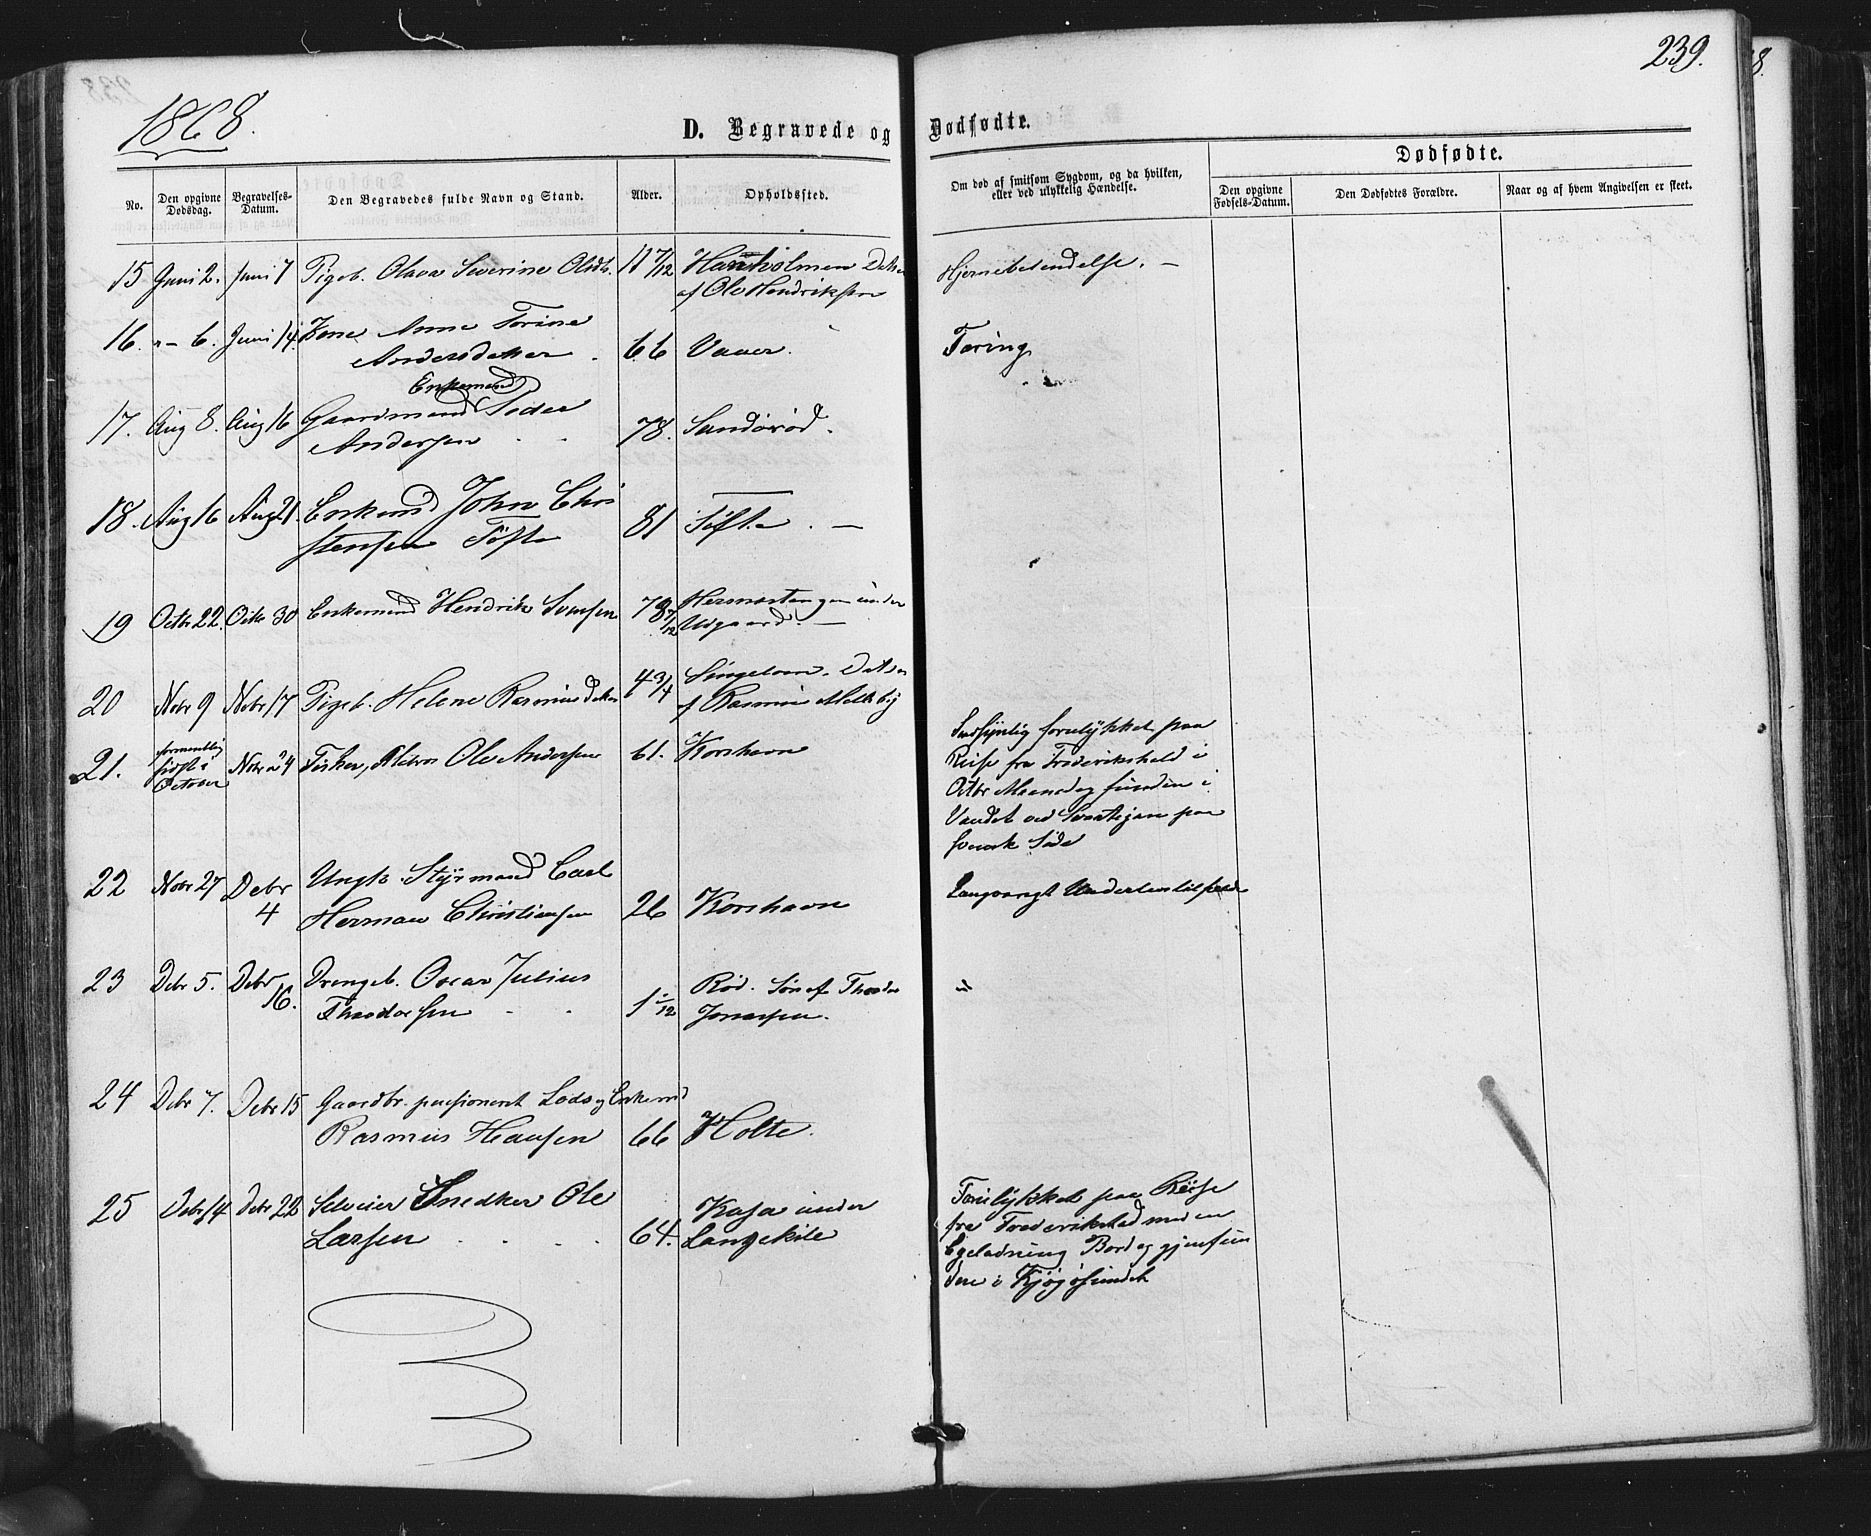 239.
1868.
D. Begravede og Dødfødte.
No.
Den opgivne Dødsdag.
Begravelses-Datum.
Den Begravedes fulde Navn og Stand.
Alder.
Opholdssted.
Om død af smitsom Sygdom, og da hvilken,
eller ved ulykkelig Hændelse.
Dødfødte.
Den opgivne Fødsels-Datum.
Den Dødfødtes Forældre.
Naar og af hvem Angivelsen er skeet.
15 Juni 2. Juni 7 Pigeb. Olava Severine Olsdtr. 11 7/12
af Ole Hendriksen
Hjernebetendelse. –
16. "– 6. Juni 14. Kone Anne Torine
Andersdatter . 66 Vauer.
Tæring
Enkemand
17. Aug 8. Aug 16 Gaardmand Peder
Andersen - - 78. Sandørød.
18. Aug 16 Aug 21. Enkemd John Chri
stensen Tøfte 81 Tøfte . –
19 Octbr 22. Octbr 30 Enkemand Hendrik Svensen 78 7/12 under
Urgaard. –
20 Nobr 9 Nobr 17 Pigeb. Helene Rasmusdatter 4 3/4 Datter
af Rasmus Melleby
21. formentlig
sidst i
October Nobr 24 Fisker, Ole Andersen 61. Korshavn
Sandsynlig forulykket paa
Reise fra Frederikshald i
Octbr Maaned og funden i
Vandet ved paa
svensk Side
22 Nobr 27 Debr
4 Ungk. Styrmand Carl
Herman Christiansen 26 Korshavn
Langvarigt Underlivstilfælde
23 Debr 5. Debr
16. Drengeb. Oscar Julius
Theodorsen - - 1 1/12 Rød. Søn af Theodor
Jonassen.
"
24 Debr 7. Debr 15 Gaardbr. pensioneret Lods og Enkemd
Rasmus Hansen 66 Holte.
25 Debr 14 Debr 22 Selveier Snedker Ole
Larsen . . . . 64. Kasa under
Langekile
Forulykket paa Reise
fra Frederikstad med en
Egeladning Bord og gjenfun
den i Kjøgøsundet